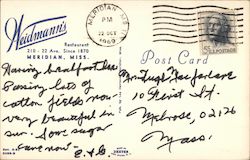 Weidmann's
Restaurant
210 - 22 Ave. Since 1870
MERIDIAN, MISS.
MERIDIAN, MISS.
PM
22 OCT
1969
5c U.S. POSTAGE
Post Card
Having breakfast here
Seeing lots of
cotton fields now
very beautiful in
sun. Some sugar
cane now-
E. & G
Mrs. Hugh Macfarlane
10 First St.
Melrose, 02176
Mass.
DEXTER